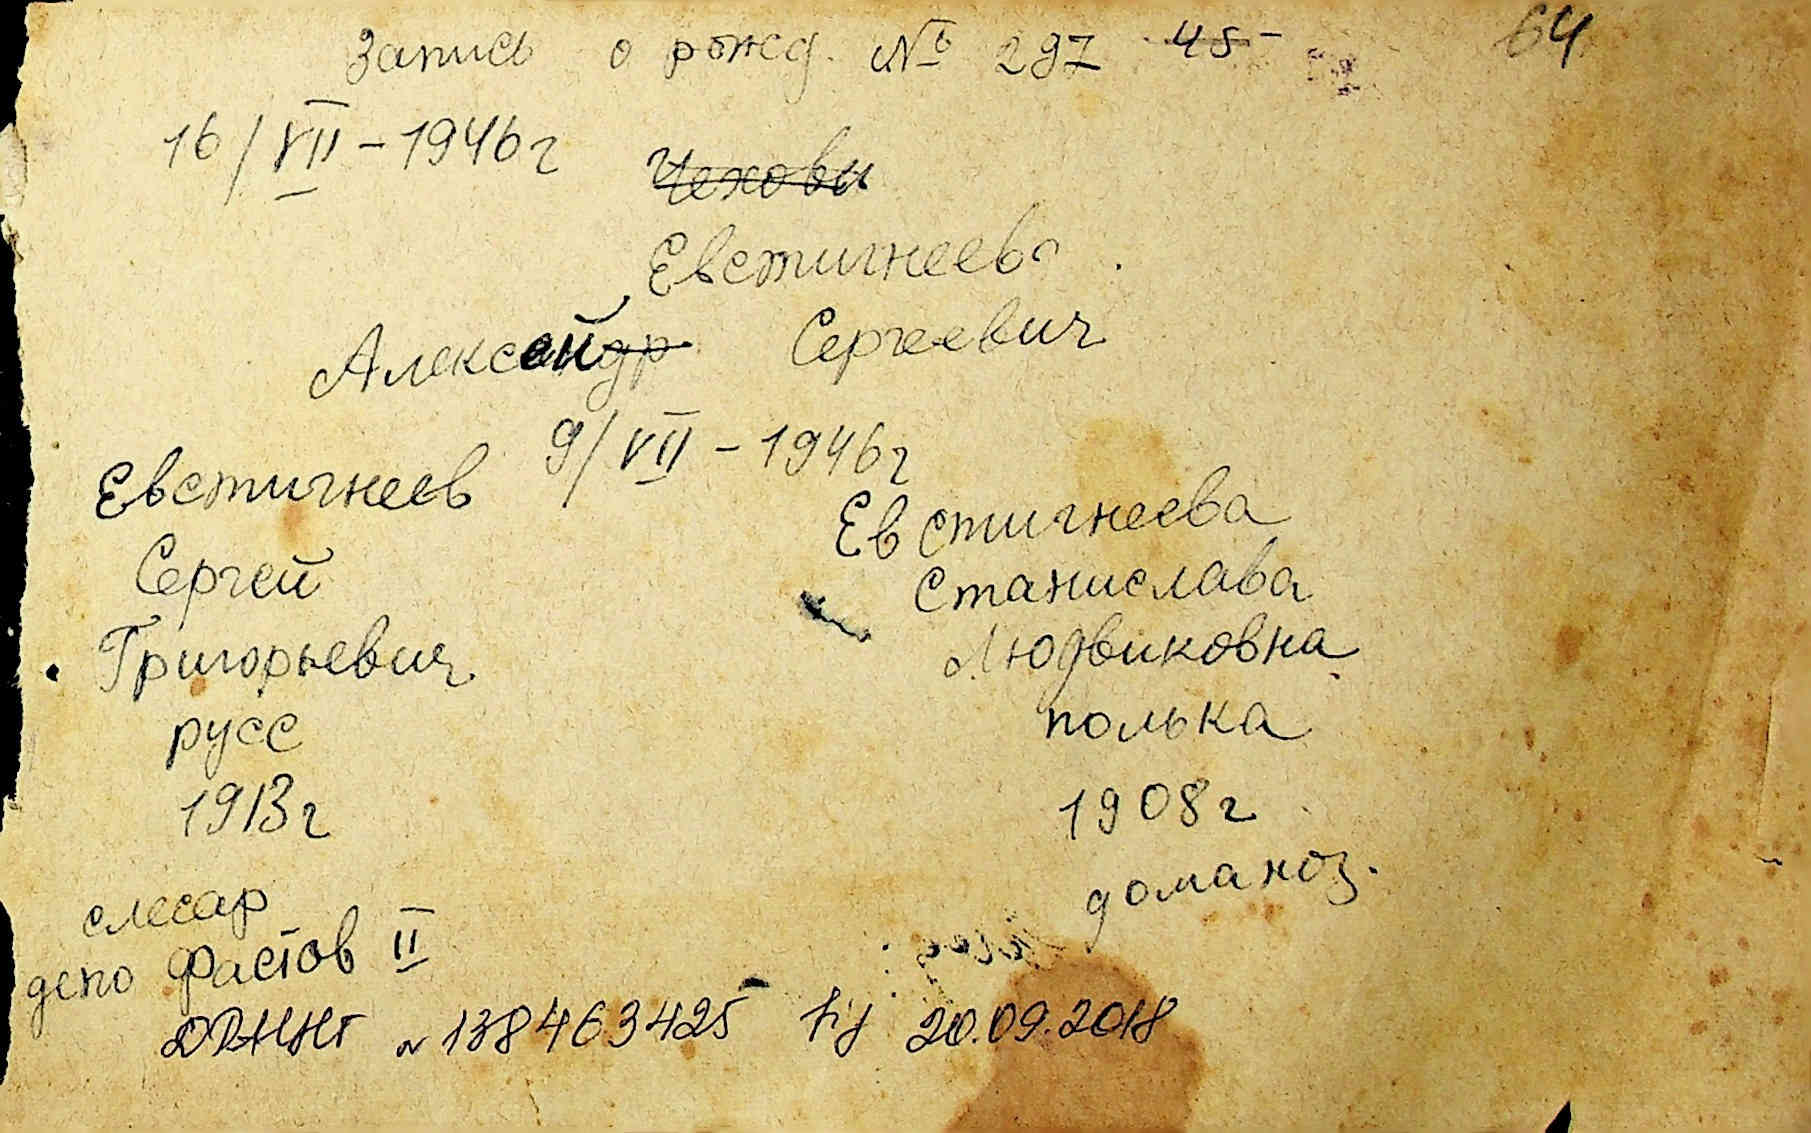 Запись о рожд. № 297 45- 64
16/VII - 1946г
Чехови
Евстигнеев
Александр Сергеевич
9/VII - 1946г
Евстигнеев Евстигнеева
Сергей Станислава
Григорьевич Людвиковна
русс полька
1913г 1908г
слесар домахоз.
депо Фастов II
№ 138463425 від 20.09.2018